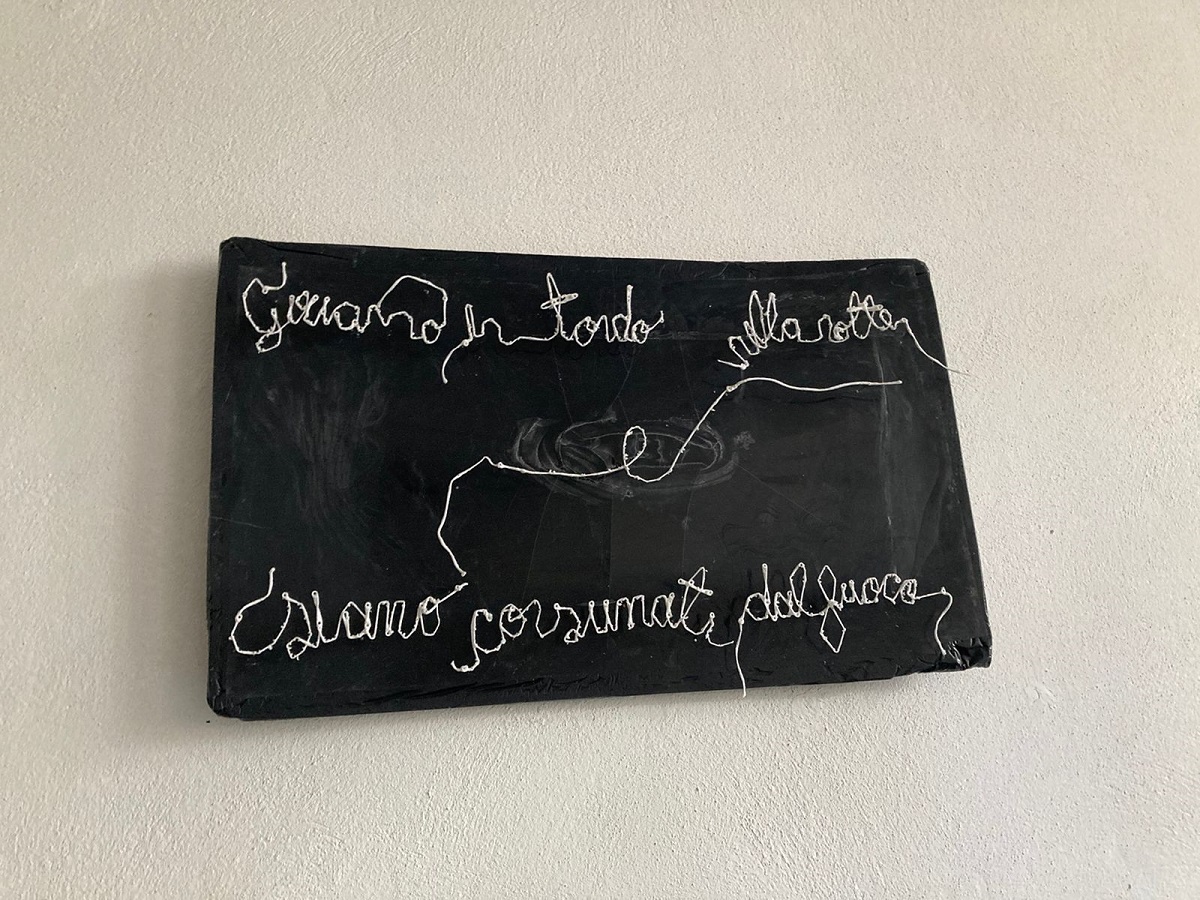 Giriamo in tondo nella notte
e
siamo consumati dal fuoco